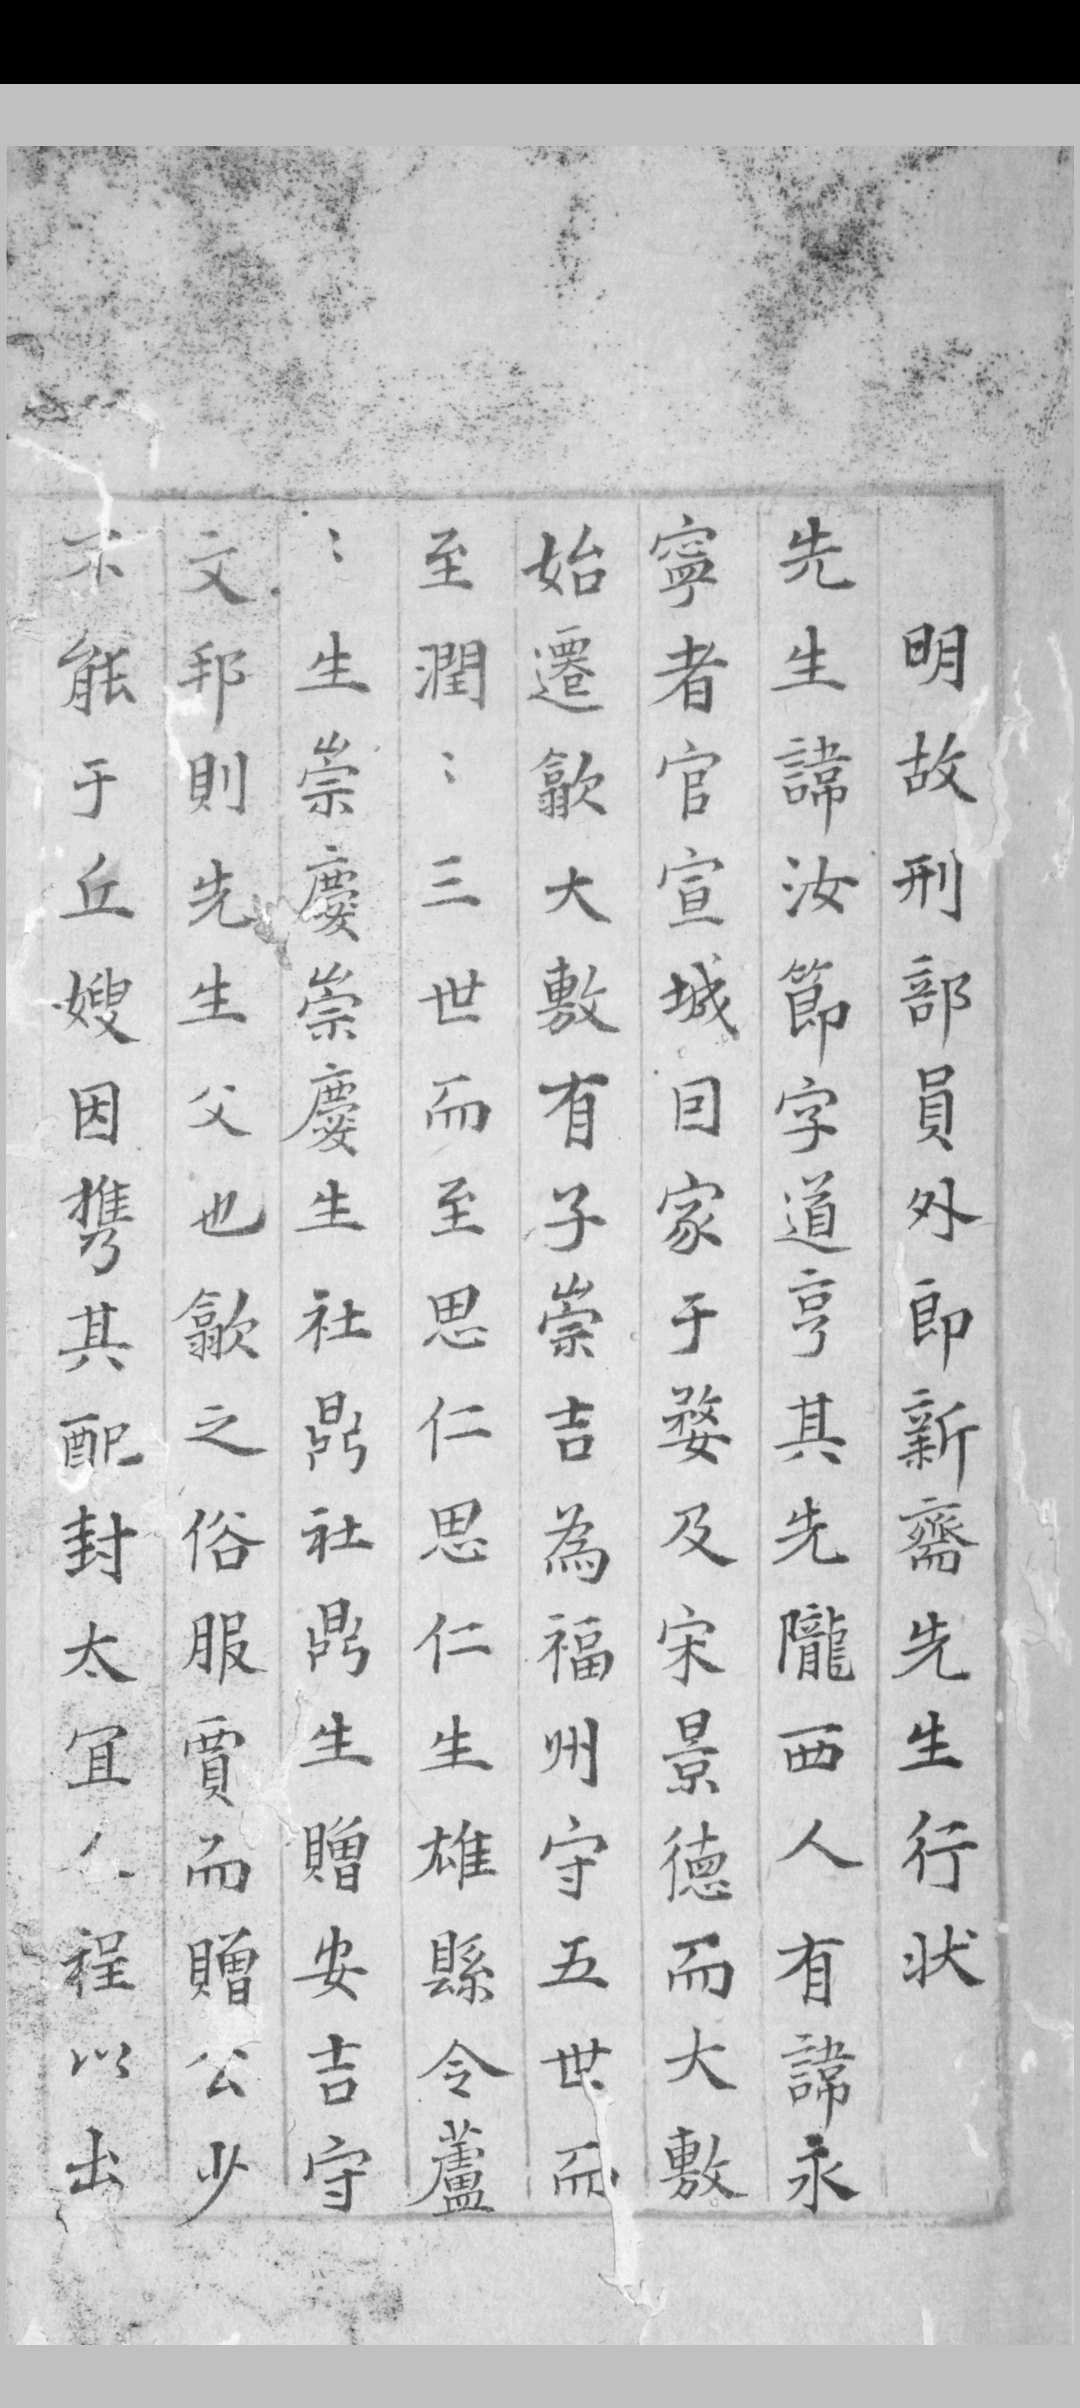 明故刑部員外郎新齋先生行狀
先生諱汝節字道亨其先隴西人有諱永
寧者官宣城回家于婺及宋景德而大敷
始遷歙大敷有子崇吉為福州守五世而
至潤〻三世而至思仁思仁生雄縣令蘆
〻生崇慶崇慶生社鼎社鼎生贈安吉守
文邦則先生父也歙之俗服賈而贈公少
不能于丘嫂因攜其配封太宜人程以出